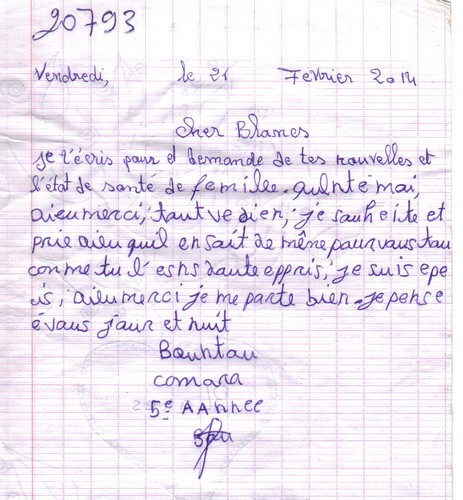 20793
Vendredi, le 21 Fevrier 2014
cher Blancs
je t'écris pour et demande de tes nouvelles et
l'état de santé de femilee. quintémai,
dieumerci, tout ve bien, je souheité et
prie dieu quil ensait de même pour vous tou
comme tu l'eshs doute eppris, je suis epe
is, dieu merci je me porte bien. je pense
évous jour et nuit
Bountou
comara
5e AAnnee